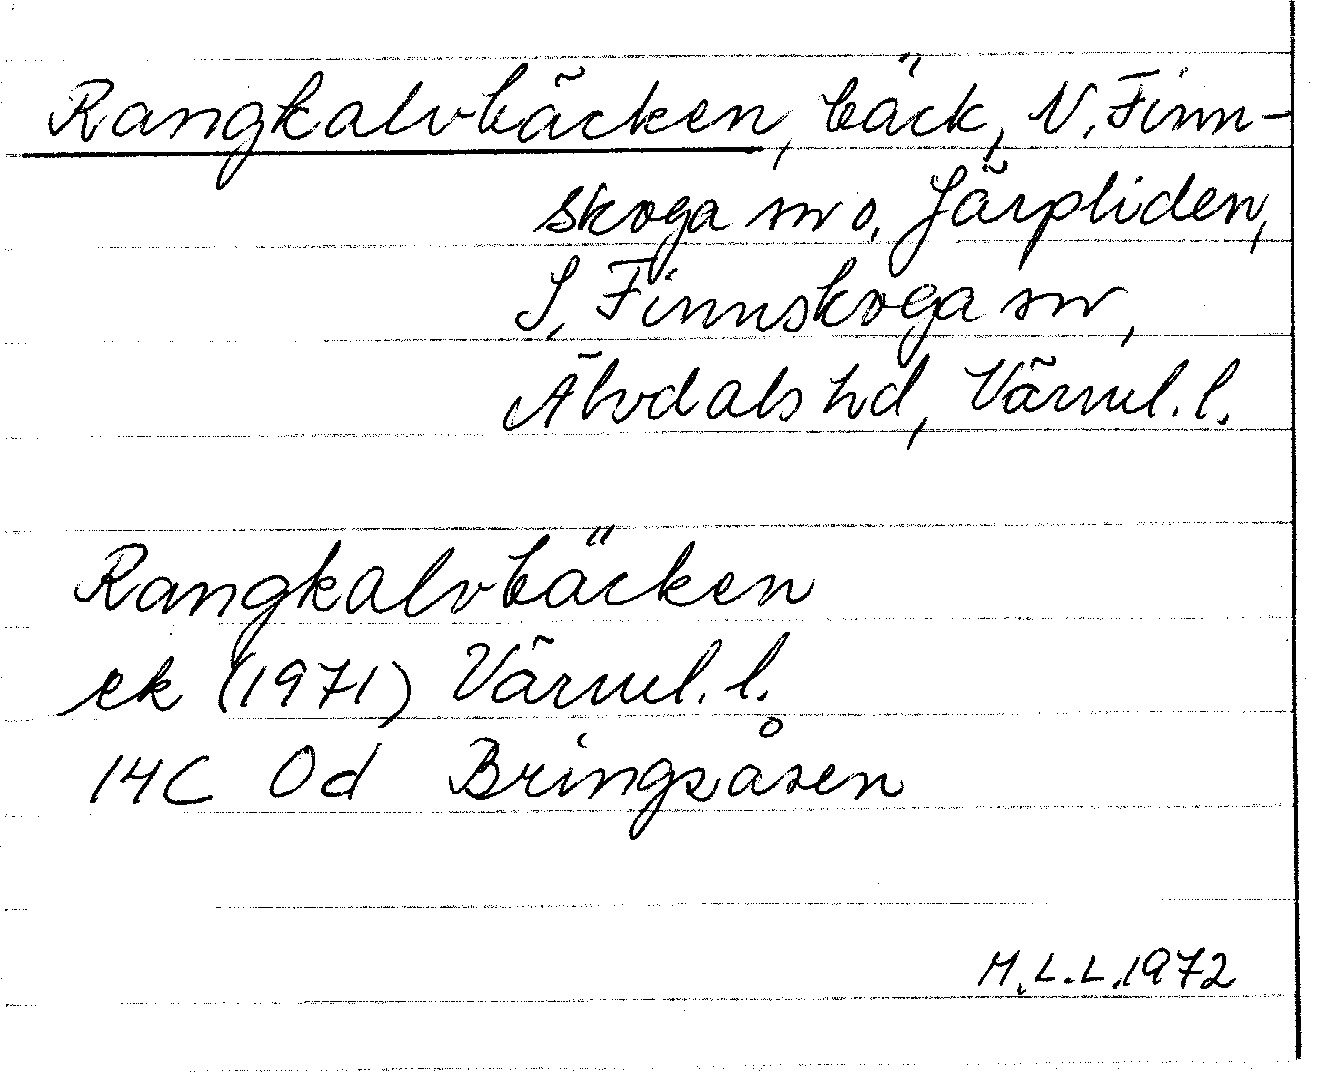 Rangkalvbäcken, bäck, N. Finn-
skoga sn o. Järpliden,
S. Finnskoga sn,
Älvdals hd, Värml. l.
Rangkalvbäcken
ek (1971) Värml. l.
14C 0d Bringsåsen
M.L.L. 1972